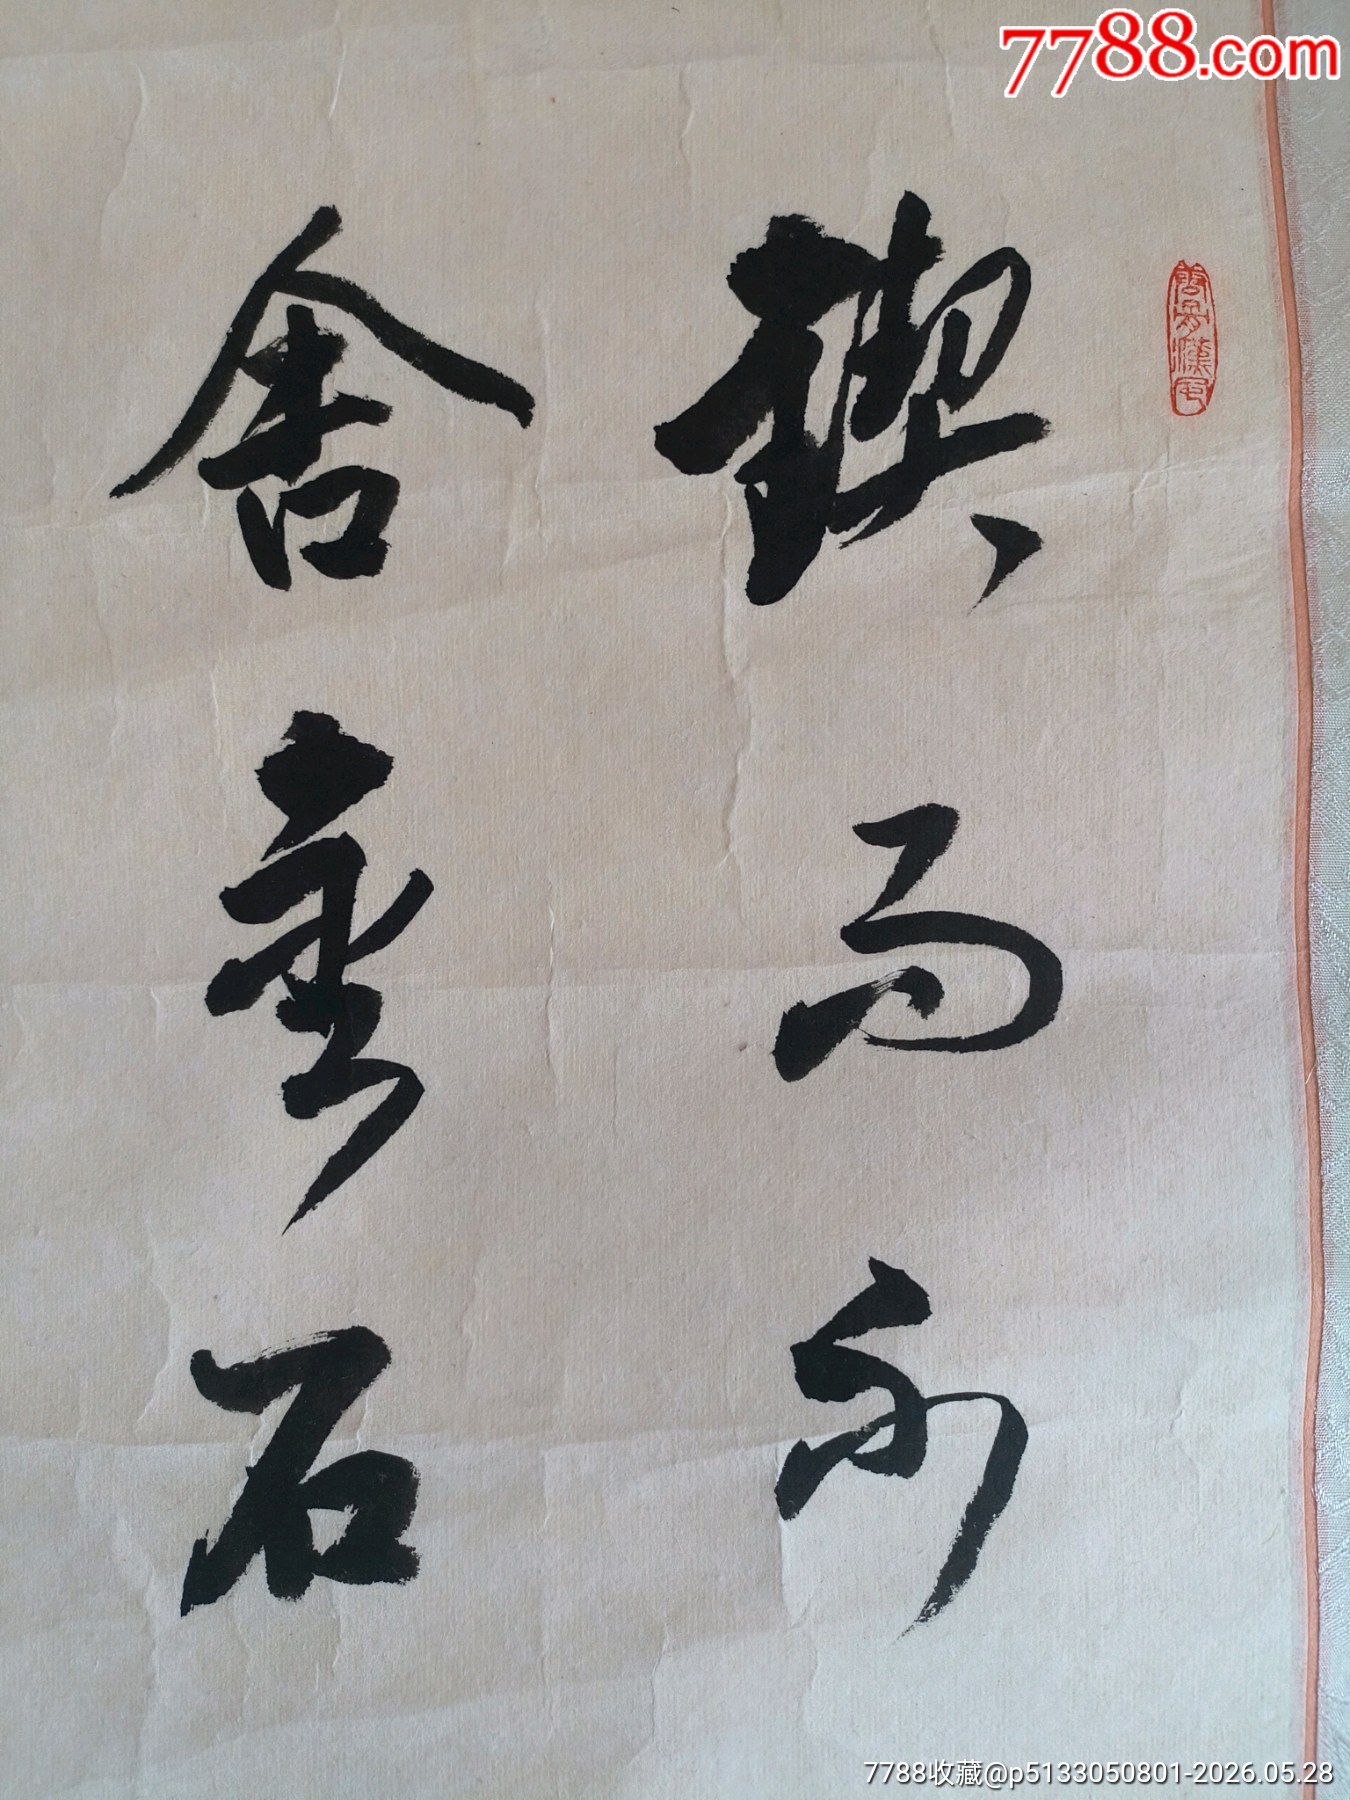 7788.com
锲而不
舍金石
7788收藏@p5133050801-2026.05.28